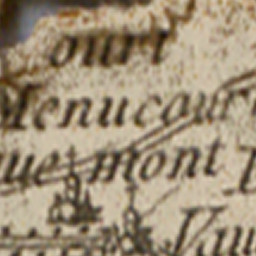 ourt
Menucour
quemont
Vau